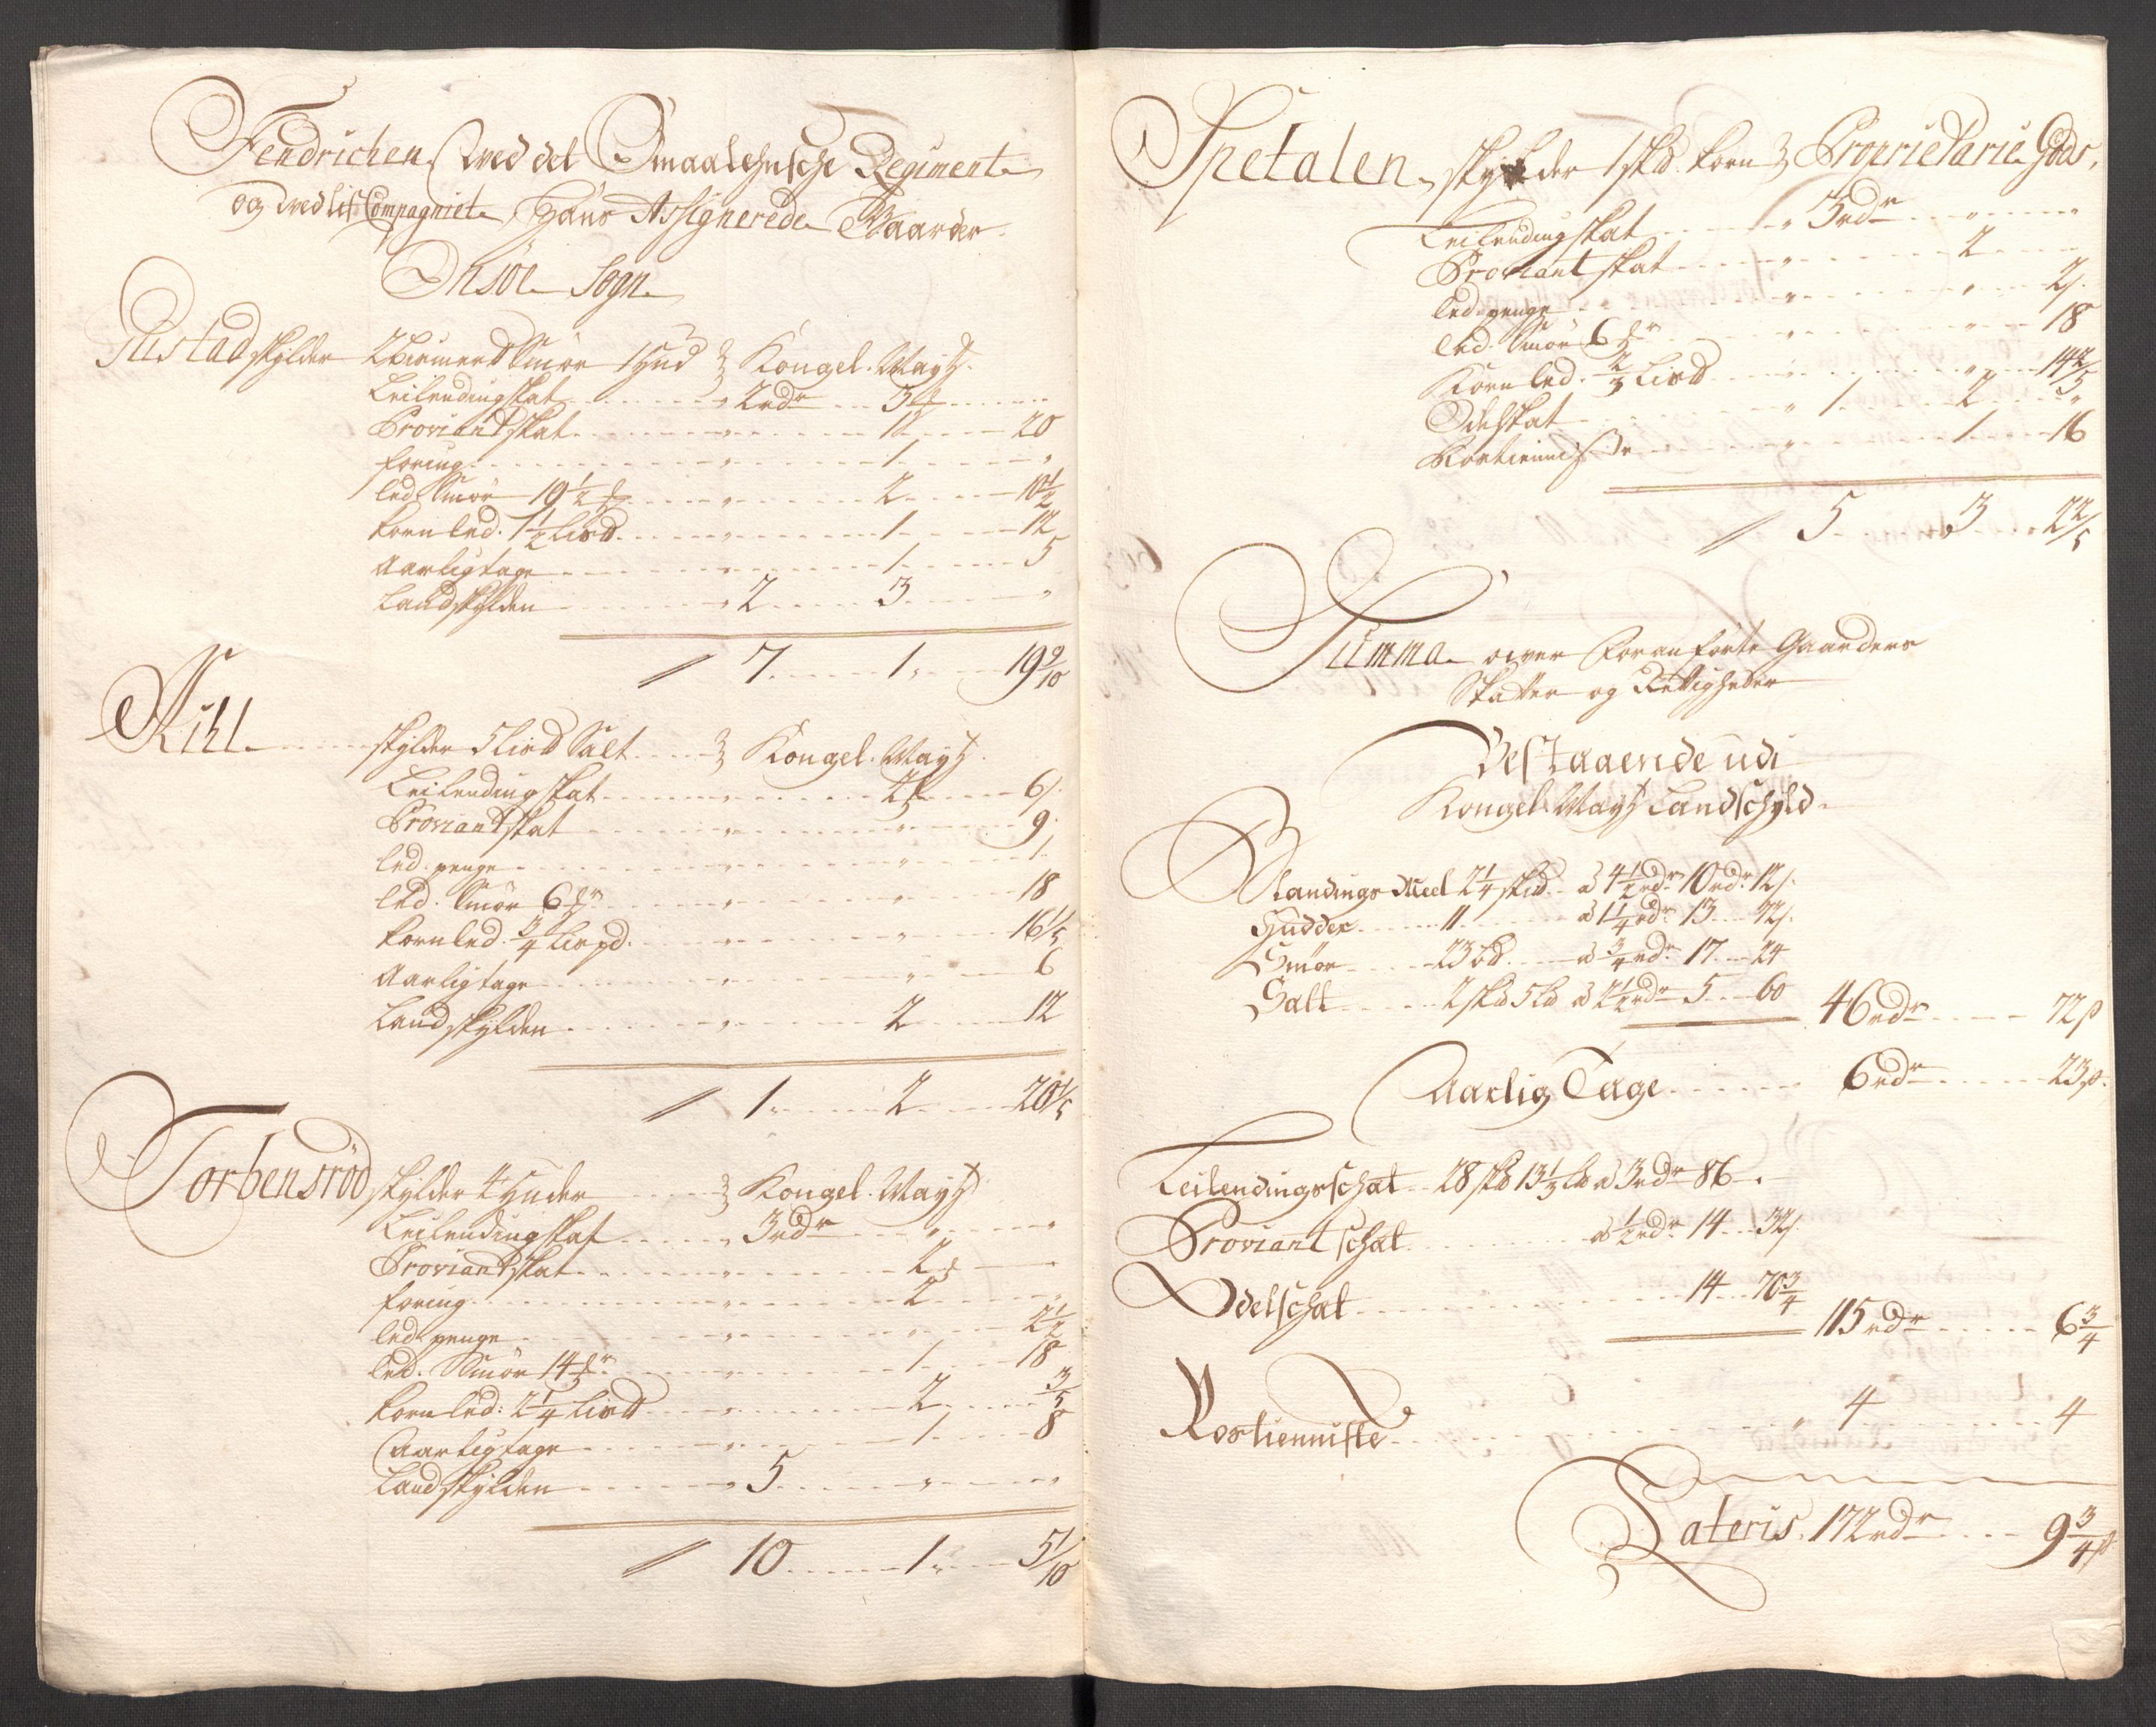 Fendrichen Wed det Smaalehnsche Regiment
og Wed lif Compagniet, Hans Assignerede Gaarder
Onsöe Sogn
Gustad skylder 2 Bismerd Smör 1 Hud Kongel. Mayt.
Leilendingskat 2 rdr 3
Proviandtskat 1 20
foring 1
led Smör 19 1/2 2 10 1/2
Korn led. 1 1/2 Lisd 1 12
Aarligtage 1 5
Landskylden 2 3
7 1 19 9/10
Kihl skylder 5 Lisd Salt Kongel. Mayt.
Leilendingskat 2 6
Proviandtskat 9
led. penge 1
led. Smör 6 18
Korn led. 3/4 Lispd. 16 1/5
Aarligtage 6
Landskylden 2 12
1 2 20 1/5
Torbensröd skylder 4 Huder Kongel. Mayt.
Leilendingskat 3 rdr
Proviandtskat 2
foring 2
led. penge 2 1/2
led. Smör 14 1 18
Korn led: 2 1/4 Lisd 2 3/5
Aarligtage 1 8
Landskylden 5
10 1 5 1/10
Spetalen skylder 1 skd. Korn Proprietarie Gods.
Leilendingskat 3 rdr
Proviantskat 2
led. penge 2
led. Smör 6 18
Korn led. 2/3 Lisd 14 2/5
Odelskat 1 2
Rostienniste 1 16
5 3 2 2/5
Summa over Foranförte Gaarders
Skatter og Rettigheder
Bestaaende udi
Kongel. Mayt Landschyld
Blandings Meel 2 1/4 skd. a 4 1/2 rdr 10 rdr 12
Hudder 11 a 1 1/4 rdr 13 72
Smör 23 bd. a 3/4 rdr 17 24
Salt 2 skd 5 ld a 2 1/2 rdr 5 60 46 rdr 72 s
Aarlig Tage 6 rdr 23 s.
Leilendingsschat 28 skd 13 1/3 ld a 3 rdr 86
Proviantschat a 1/2 rdr 14 32
Odelschat 14 70 3/4 115 rdr 6 3/4
Rostienniste 4 4
Lateris 172 rdr 9 3/4 s